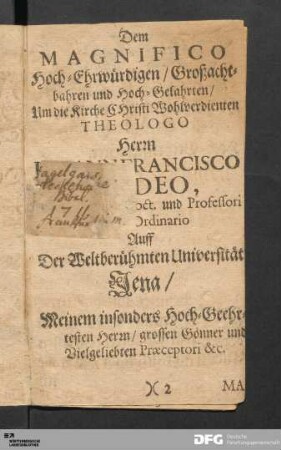 Dem
MAGNIFICO
Hoch-Ehrwürdigen / Großacht-
bahren und Hoch-Gelahrten /
Um die Kirche CHristi Wohlverdienten
THEOLOGO
Herrn
FRANCISCO
DEO,
oct. und Professori
Ordinario
Auff
Der Weltberühmten Universität
Jena /
Meinem insonders Hoch-Geehr-
testen Herrn / grossen Gönner und
Vielgeliebten Præceptori &c.
)( 2
MA
DFG
Deutsche
Forschungsgemeinschaft